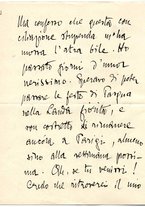 Ma confesso che questa con
ciliazione stupenda m'ha
mossa l'atra bile. Ho
passato giorni d'umor
nerissimo. Speravo di poter
passare le feste di Pasqua
nella Landa fiorita, e
son costretto a rimanere
ancora a Parigi, almeno
sino alla settimana prossi-
ma. Oh, se tu venissi!
Credo che ritroverei il mio